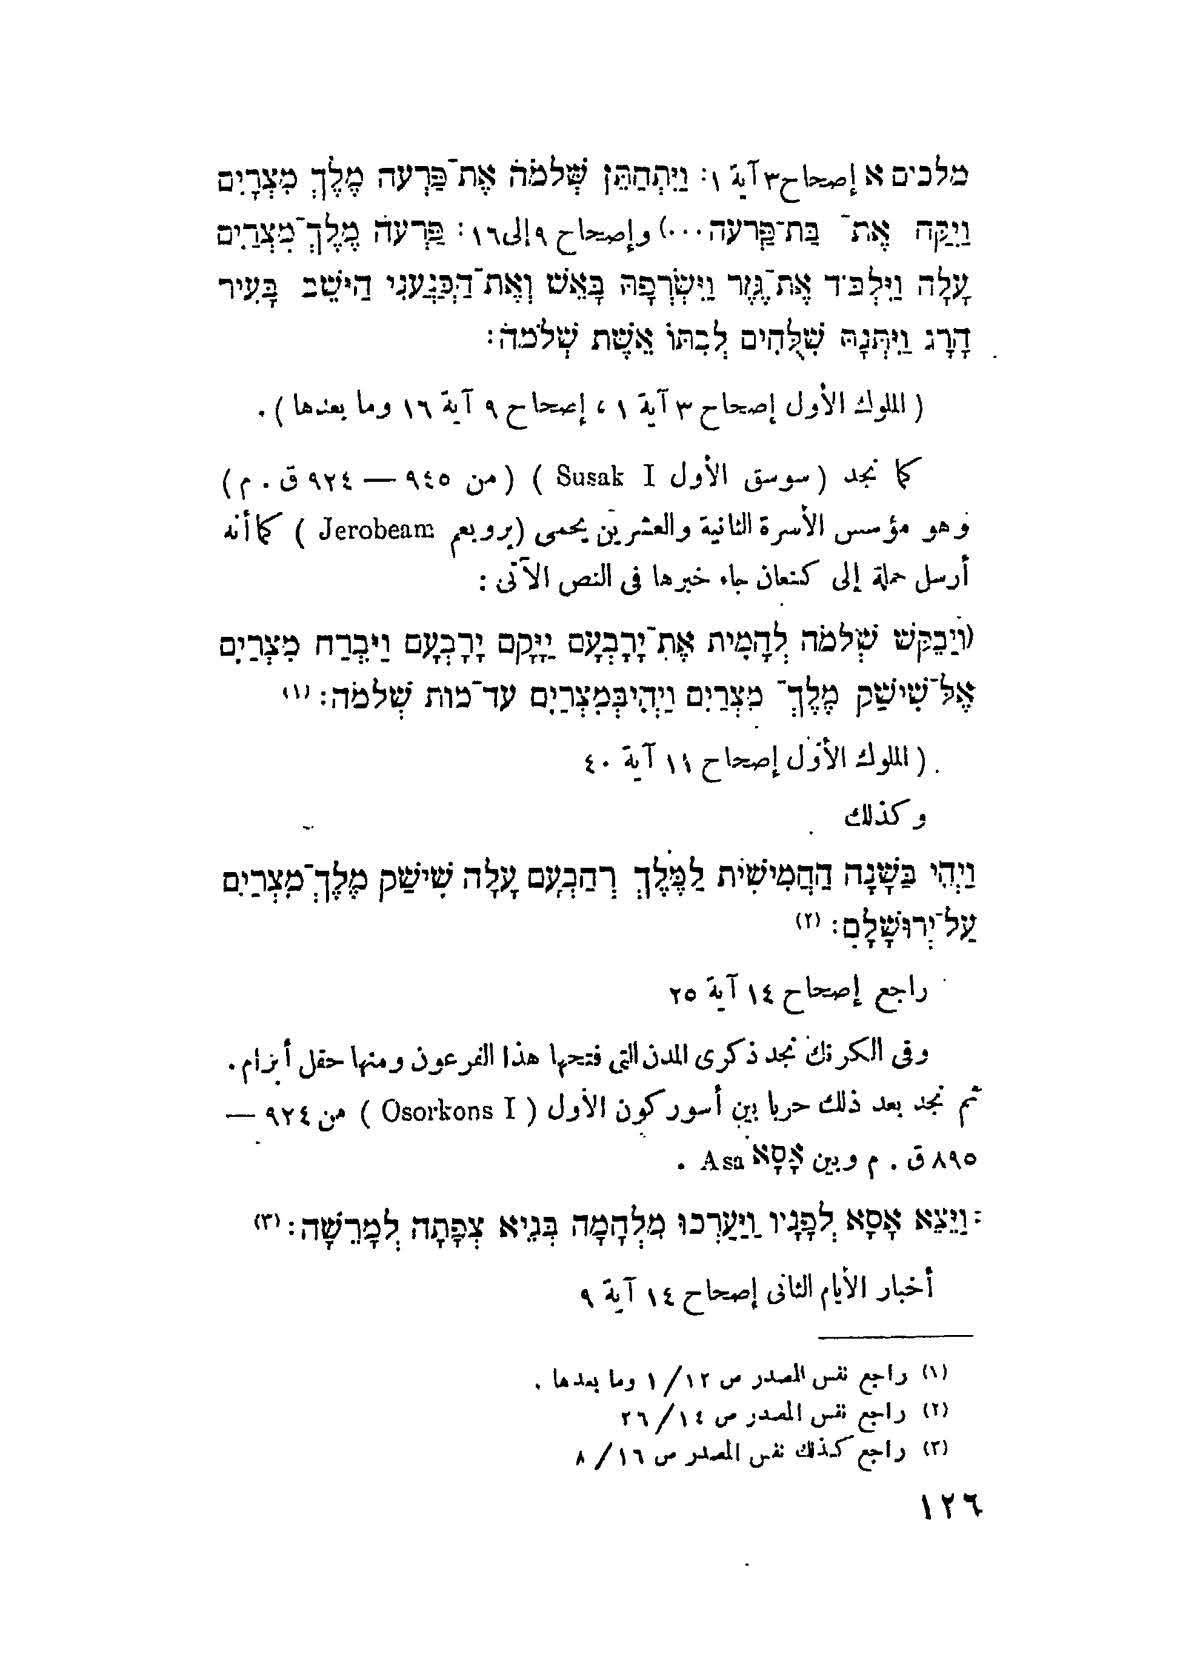 מלכים א إصحاح ٣ آية ١: וַיִּתְחַתֵּן שְׁלֹמֹה אֶת־פַּרְעֹה מֶלֶךְ מִצְרָיִם
וַיִּקַּח אֶת־ בַּת־פַּרְעֹה...) وإصحاح ٩ إلى ١٦: פַּרְעֹה מֶלֶךְ־מִצְרַיִם
עָלָה וַיִּלְכֹּד אֶת־גֶּזֶר וַיִּשְׂרְפָהּ בָּאֵשׁ וְאֶת־הַכְּנַעֲנִי הַיֹּשֵׁב בָּעִיר
הָרָג וַיִּתְּנָהּ שִׁלֻּהִים לְבִתּוֹ אֵשֶׁת שְׁלֹמֹה:
( الملوك الأول إصحاح ٣ آية ١ ، إصحاح ٩ آية ١٦ وما بعدها ) .
كما نجد ( سوسق الأول Susak I ) ( من ٩٤٥ — ٩٢٤ ق . م )
وهو مؤسس الأسرة الثانية والعشرين يحمى (يروبعم Jerobeam ) كما أنه
أرسل حملة إلى كنعان جاء خبرها فى النص الآتى :
(וַיְבַקֵּשׁ שְׁלֹמֹה לְהָמִית אֶת־יָרָבְעָם וַיָּקָם יָרָבְעָם וַיִּבְרַח מִצְרַיִם
אֶל־שִׁישַׁק מֶלֶךְ־ מִצְרַיִם וַיְהִיבְּמִצְרַיִם עד־מות שְׁלֹמֹה: (١)
( الملوك الأول إصحاح ١١ آية ٤٠
وكذلك
וַיְהִי בַּשָּׁנָה הַחֲמִישִׁית לַמֶּלֶךְ רְחַבְעָם עָלָה שִׁישַׁק מֶלֶךְ־מִצְרַיִם
עַל־יְרוּשָׁלָםִ: (٢)
راجع إصحاح ١٤ آية ٢٥
وفى الكرنك نجد ذكرى المدن التى فتحها هذا الفرعون ومنها حقل أبرام .
ثم نجد بعد ذلك حربا بين أسوركون الأول ( Osorkons I ) من ٩٢٤ —
٨٩٥ ق . م وبين אָסָא Asa .
וַיֵּצֵא אָסָא לְפָנָיו וַיַּעַרְכוּ מִלְהָמָה בְּגֵיא צְפָתָה לְמָרֵשָׁה: (٣)
أخبار الأيام الثانى إصحاح ١٤ آية ٩
(١) راجع نفس المصدر ص ١٢ / ١ وما بعدها .
(٢) راجع نفس المصدر ص ١٤ / ٢٦
(٣) راجع كذلك نفس المصدر ص ١٦ / ٨
١٢٦